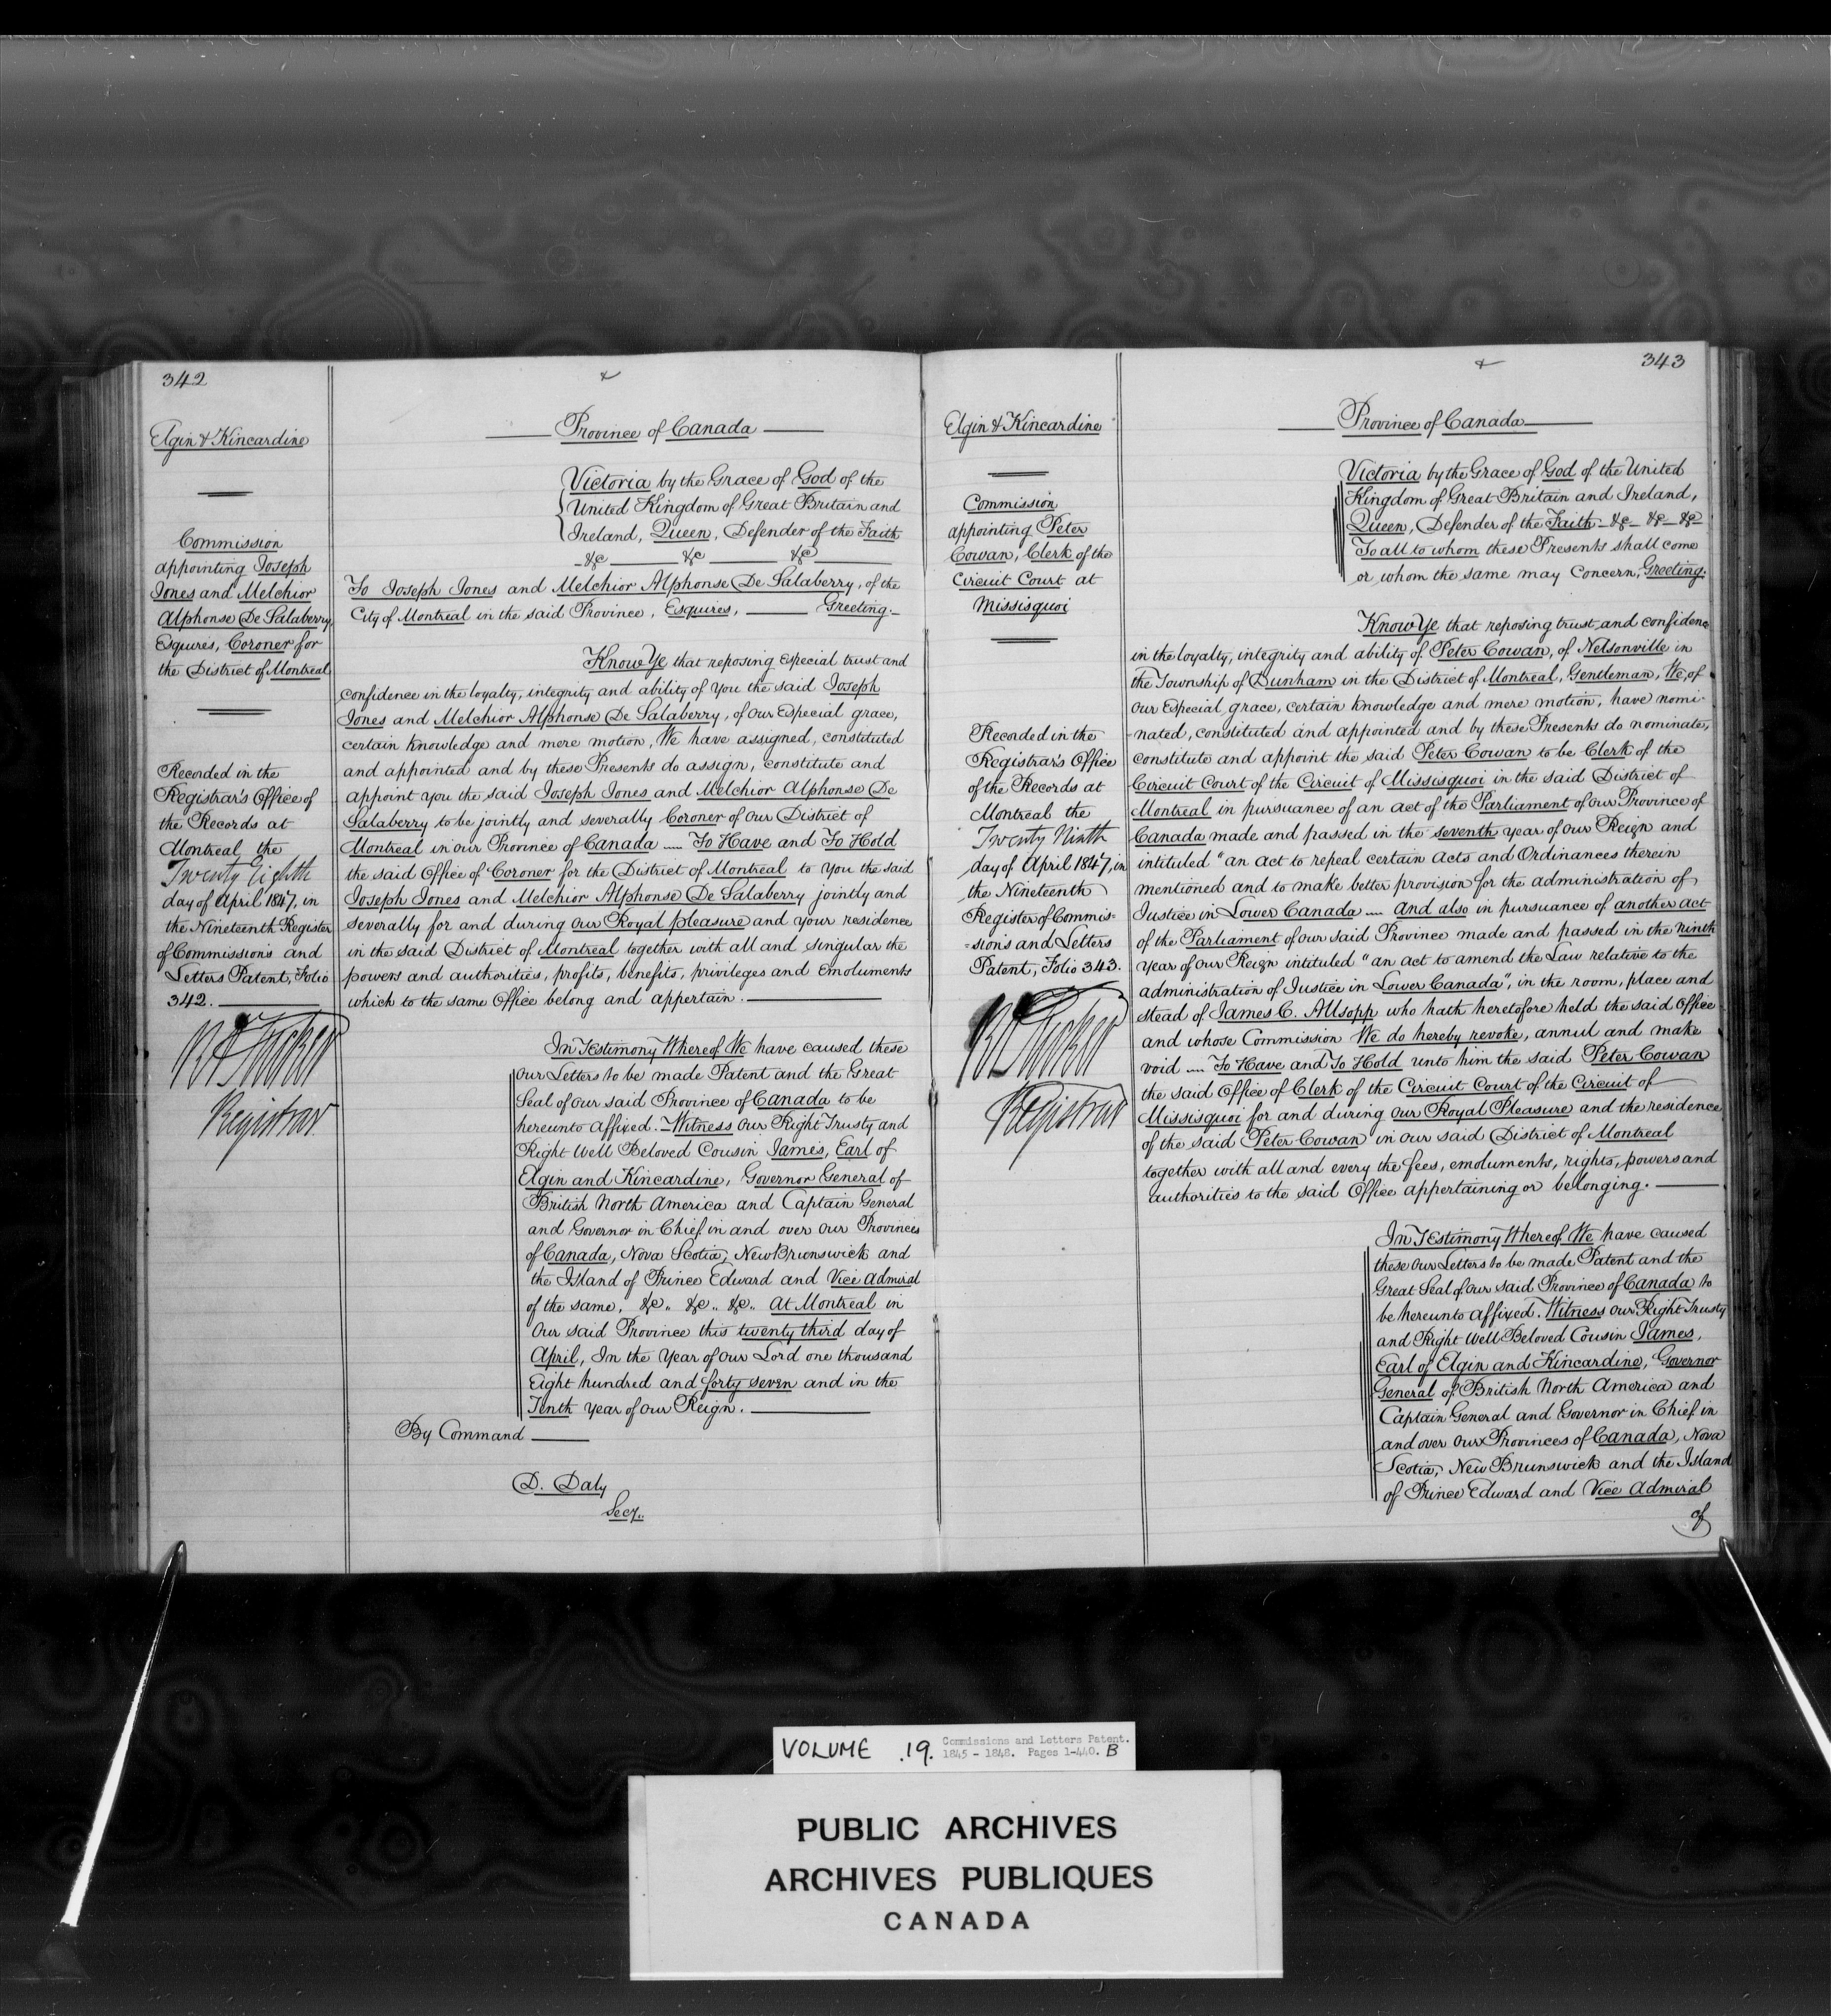 342
Elgin & Kincardine
Commission
appointing Joseph
Jones and Melchior
Alphonse De Salaberry,
Esquires, Coroner for
the District of Montreal
Recorded in the
Registrar's Office of
the Records at
Montreal the
Twenty Eighth
day of April 1847, in
the Nineteenth Register
of Commissions and
Letters Patent, Folio
342.
R A Tucker
Registrar
Province of Canada
Victoria by the Grace of God of the
United Kingdom of Great Britain and
Ireland, Queen, Defender of the Faith
&c &c &c
To Joseph Jones and Melchior Alphonse De Salaberry, of the
City of Montreal in the said Province, Esquires, Greeting.
Know Ye that reposing especial trust and
confidence in the loyalty, integrity and ability of you the said Joseph
Jones and Melchior Alphonse De Salaberry, of our especial grace,
certain knowledge and mere motion, We have assigned, constituted
and appointed and by these Presents do assign, constitute and
appoint you the said Joseph Jones and Melchior Alphonse De
Salaberry to be jointly and severally Coroner of our District of
Montreal in our Province of Canada To Have and To Hold
the said Office of Coroner for the District of Montreal to you the said
Joseph Jones and Melchior Alphonse De Salaberry jointly and
severally for and during our Royal pleasure and your residence
in the said District of Montreal together with all and singular the
powers and authorities, profits, benefits, privileges and emoluments
which to the same Office belong and appertain.
In Testimony Whereof We have caused these
our Letters to be made Patent and the Great
Seal of our said Province of Canada to be
hereunto affixed. Witness our Right Trusty and
Right Well Beloved Cousin James, Earl of
Elgin and Kincardine, Governor General of
British North America and Captain General
and Governor in Chief in and over our Provinces
of Canada, Nova Scotia, New Brunswick and
the Island of Prince Edward and Vice Admiral
of the same, &c. &c. &c. At Montreal in
our said Province this twenty third day of
April, In the Year of our Lord one thousand
Eight hundred and forty seven and in the
Tenth year of our Reign.
By Command
D. Daly
Secy.
343
Elgin & Kincardine
Commission
appointing Peter
Cowan, Clerk of the
Circuit Court at
Missisquoi
Recorded in the
Registrar's Office
of the Records at
Montreal the
Twenty Ninth
day of April 1847, in
the Nineteenth
Register of Commis=
=sions and Letters
Patent, Folio 343.
R A Tucker
Registrar
Province of Canada
Victoria by the Grace of God of the United
Kingdom of Great Britain and Ireland,
Queen, Defender of the Faith &c &c &c
To all to whom these Presents shall come
or whom the same may Concern, Greeting.
Know Ye that reposing trust and confidence
in the loyalty, integrity and ability of Peter Cowan, of Nelsonville in
the Township of Dunham in the District of Montreal, Gentleman, We, of
our especial grace, certain knowledge and mere motion, have nomi-
nated, constituted and appointed and by these Presents do nominate,
constitute and appoint the said Peter Cowan to be Clerk of the
Circuit Court of the Circuit of Missisquoi in the said District of
Montreal in pursuance of an act of the Parliament of our Province of
Canada made and passed in the seventh year of our Reign and
intituled "an act to repeal certain acts and Ordinances therein
mentioned and to make better provision for the administration of
Justice in Lower Canada and also in pursuance of another act
of the Parliament of our said Province made and passed in the ninth
year of our Reign intituled "an act to amend the Law relative to the
administration of Justice in Lower Canada", in the room, place and
stead of James C. Allsopp who hath heretofore held the said Office
and whose Commission We do hereby revoke, annul and make
void To Have and To Hold unto him the said Peter Cowan
the said Office of Clerk of the Circuit Court of the Circuit of
Missisquoi for and during our Royal Pleasure and the residence
of the said Peter Cowan in our said District of Montreal
together with all and every the fees, emoluments, rights, powers and
authorities to the said Office appertaining or belonging.
In Testimony Whereof We have caused
these our Letters to be made Patent and the
Great Seal of our said Province of Canada to
be hereunto affixed. Witness our Right Trusty
and Right Well Beloved Cousin James,
Earl of Elgin and Kincardine, Governor
General of British North America and
Captain General and Governor in Chief in
and over our Provinces of Canada, Nova
Scotia, New Brunswick and the Island
of Prince Edward and Vice Admiral
of
VOLUME .19. Commissions and Letters Patent.
1845 - 1848. Pages 1-440. B
PUBLIC ARCHIVES
ARCHIVES PUBLIQUES
CANADA